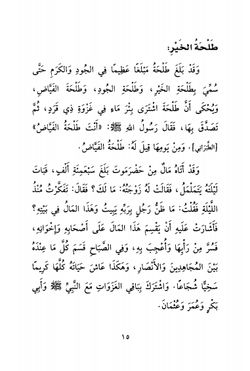 طَلْحَةُ الخَيْرِ:
وَقَدْ بَلَغَ طَلْحَةُ مَبْلَغًا عَظِيمًا فِي الجُودِ وَالكَرَمِ حَتَّى
سُمِّيَ بِطَلْحَةِ الخَيْرِ، وَطَلْحَةِ الجُودِ، وَطَلْحَةِ الفَيَّاضِ،
وَيُحْكَى أَنَّ طَلْحَةَ اشْتَرَى بِئْرَ مَاءٍ فِي غَزْوَةِ ذِي قَرَدٍ، ثُمَّ
تَصَدَّقَ بِهَا، فَقَالَ رَسُولُ اللهِ ﷺ: «أَنْتَ طَلْحَةُ الفَيَّاضُ»
[الطبراني]. وَمِنْ يَوْمِهَا قِيلَ لَهُ: طَلْحَةُ الفَيَّاضُ.
وَقَدْ أَتَاهُ مَالٌ مِنْ حَضْرَمَوْتَ بَلَغَ سَبْعَمِئَةِ أَلْفٍ، فَبَاتَ
لَيْلَتَهُ يَتَمَلْمَلُ، فَقَالَتْ لَهُ زَوْجَتُهُ: مَا لَكَ؟ فَقَالَ: تَفَكَّرْتُ مُنْذُ
اللَّيْلَةِ فَقُلْتُ: مَا ظَنُّ رَجُلٍ بِرَبِّهِ يَبِيتُ وَهَذَا المَالُ فِي بَيْتِهِ؟
فَأَشَارَتْ عَلَيْهِ أَنْ يَقْسِمَ هَذَا المَالَ عَلَى أَصْحَابِهِ وَإِخْوَانِهِ،
فَسُرَّ مِنْ رَأْيِهَا وَأُعْجِبَ بِهِ، وَفِي الصَّبَاحِ قَسَمَ كُلَّ مَا عِنْدَهُ
بَيْنَ المُهَاجِدِينَ وَالأَنْصَارِ، وَهَكَذَا عَاشَ حَيَاتَهُ كُلَّهَا كَرِيمًا
سَخِيًّا شُجَاعًا. وَاشْتَرَكَ بِبَاقِي الغَزَوَاتِ مَعَ النَّبِيِّ ﷺ وَأَبِي
بَكْرٍ وَعُمَرَ وَعُثْمَانَ.
١٥